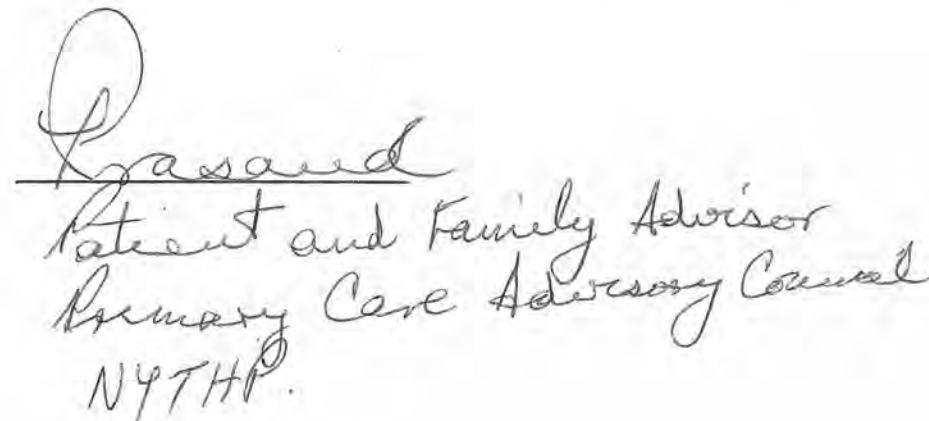 Prasaud
Patient and Family Advisor
Primary Care Advisory Council
NYTHP.